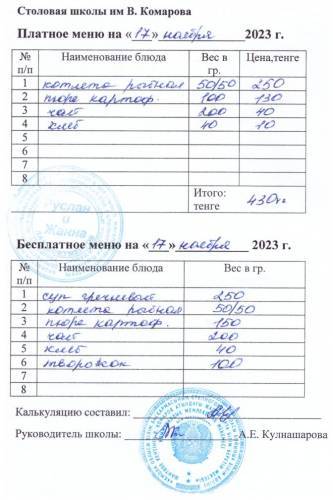 Столовая школы им В. Комарова
Платное меню на «17» ноября 2023 г.
№ п/п Наименование блюда Вес в гр. Цена,тенге
1 котлета рыбная 50/50 250
2 пюре картоф. 100 130
3 чай 200 40
4 хлеб 40 10
5
6
7
8
Итого: тенге 430тг
Руслан и Жанна
Бесплатное меню на «17» ноября 2023 г.
№ п/п Наименование блюда Вес в гр.
1 суп гречневый 250
2 котлета рыбная 50/50
3 пюре картоф. 150
4 чай 200
5 хлеб 40
6 творожок 100
7
8
Калькуляцию составил:
Руководитель школы: А.Е. Кулнашарова